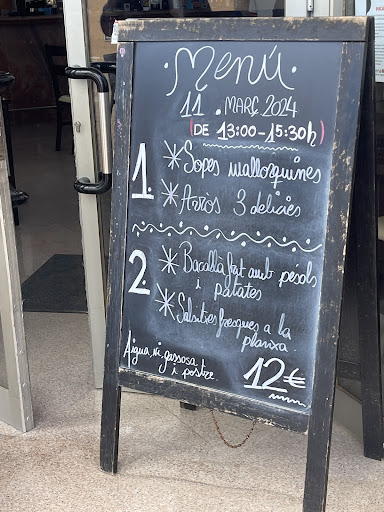 Menú
11 . MARÇ 2024
(DE 13:00-15:30h)
1. * Sopes mallorquines
* Arròs 3 delicies
2. * Bacallà fregit amb pésols
i patates
* Salsitxes fresques a la
planxa
Aigua, vi, gassosa
i postre.
12€